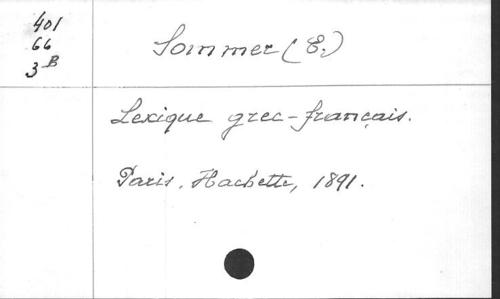 401
66
3 B
Sommer (E.)
Lexique grec-français.
Paris, Hachette, 1891.